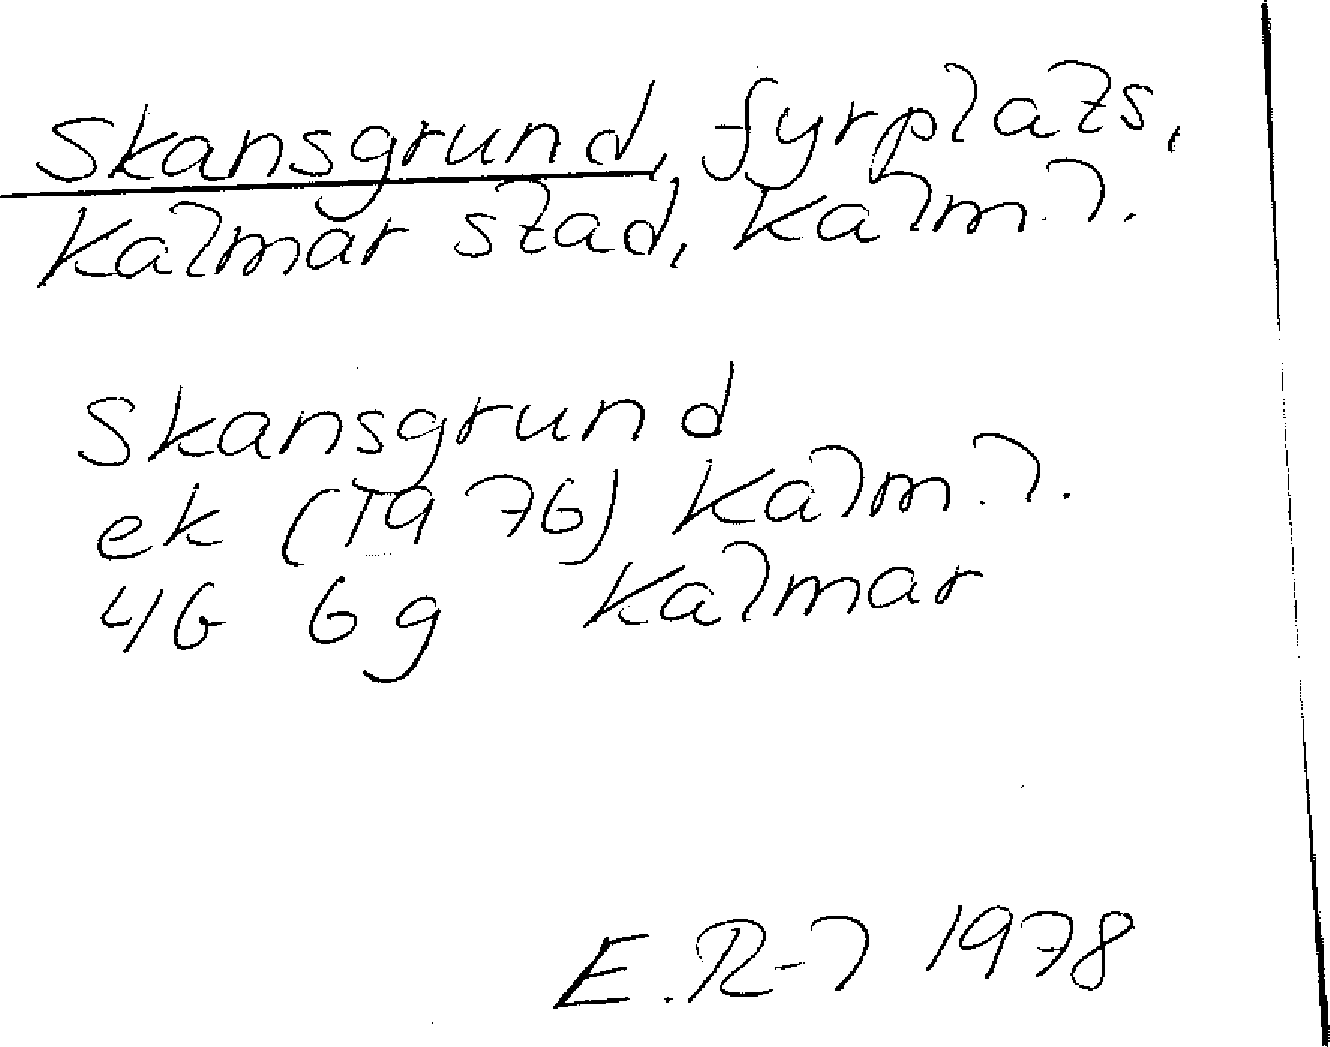 Skansgrund, fyrplats,
Kalmar stad, Kalm. l.
Skansgrund
ek (T9 76) Kalm. l.
4G 6g Kalmar
E. R-l 1978